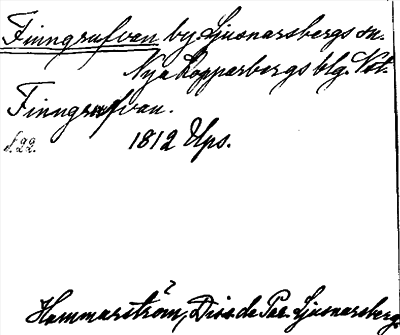 Finngrufvan by Ljusnarsbergs sn.
Nya Kopparbergs blg. Vst.
Finngrufvan.
s. 22. 1812 Ups.
Hammarström, Diss. de Par. Ljusnarsberg